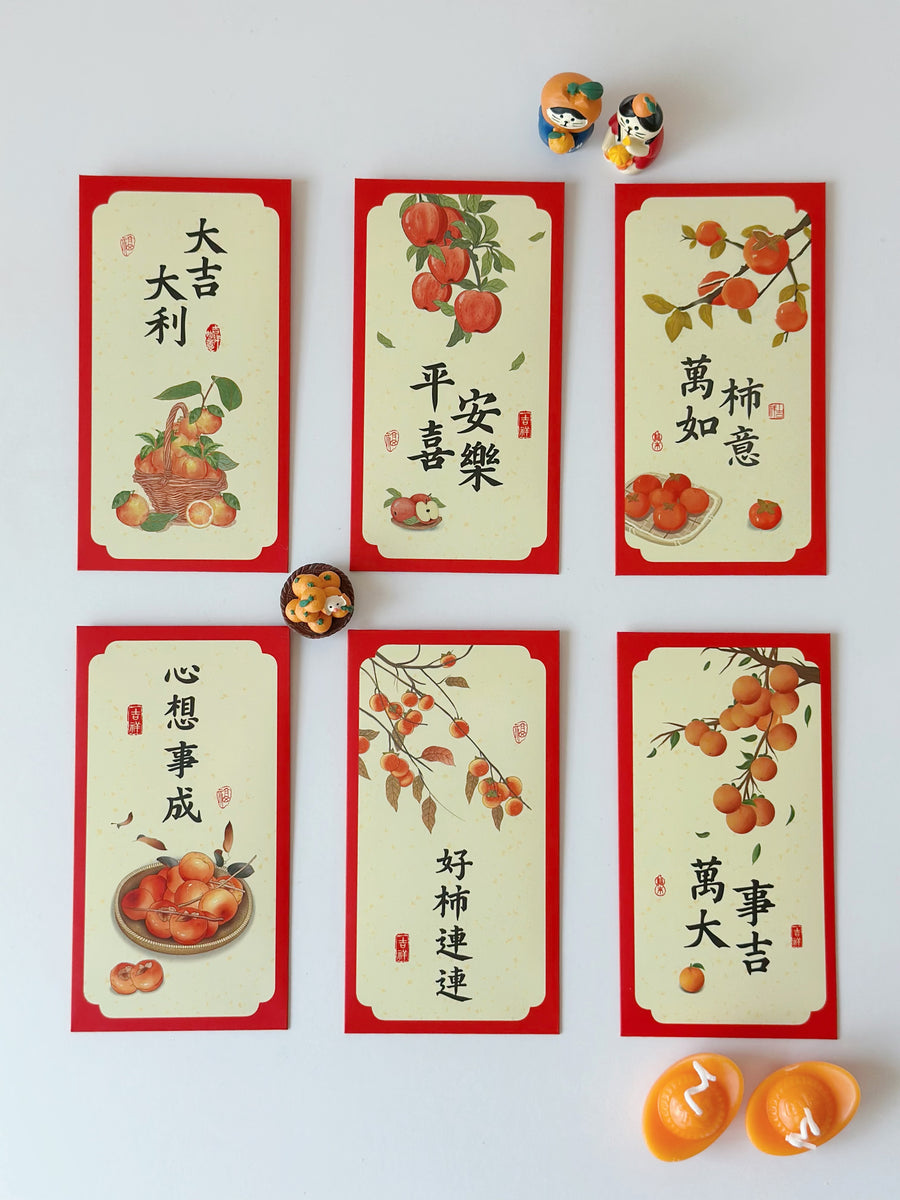 大吉
大利
平安
喜樂
吉祥
萬柿
如意
心想事成
吉祥
好柿連連
吉祥
萬事
大吉
吉祥